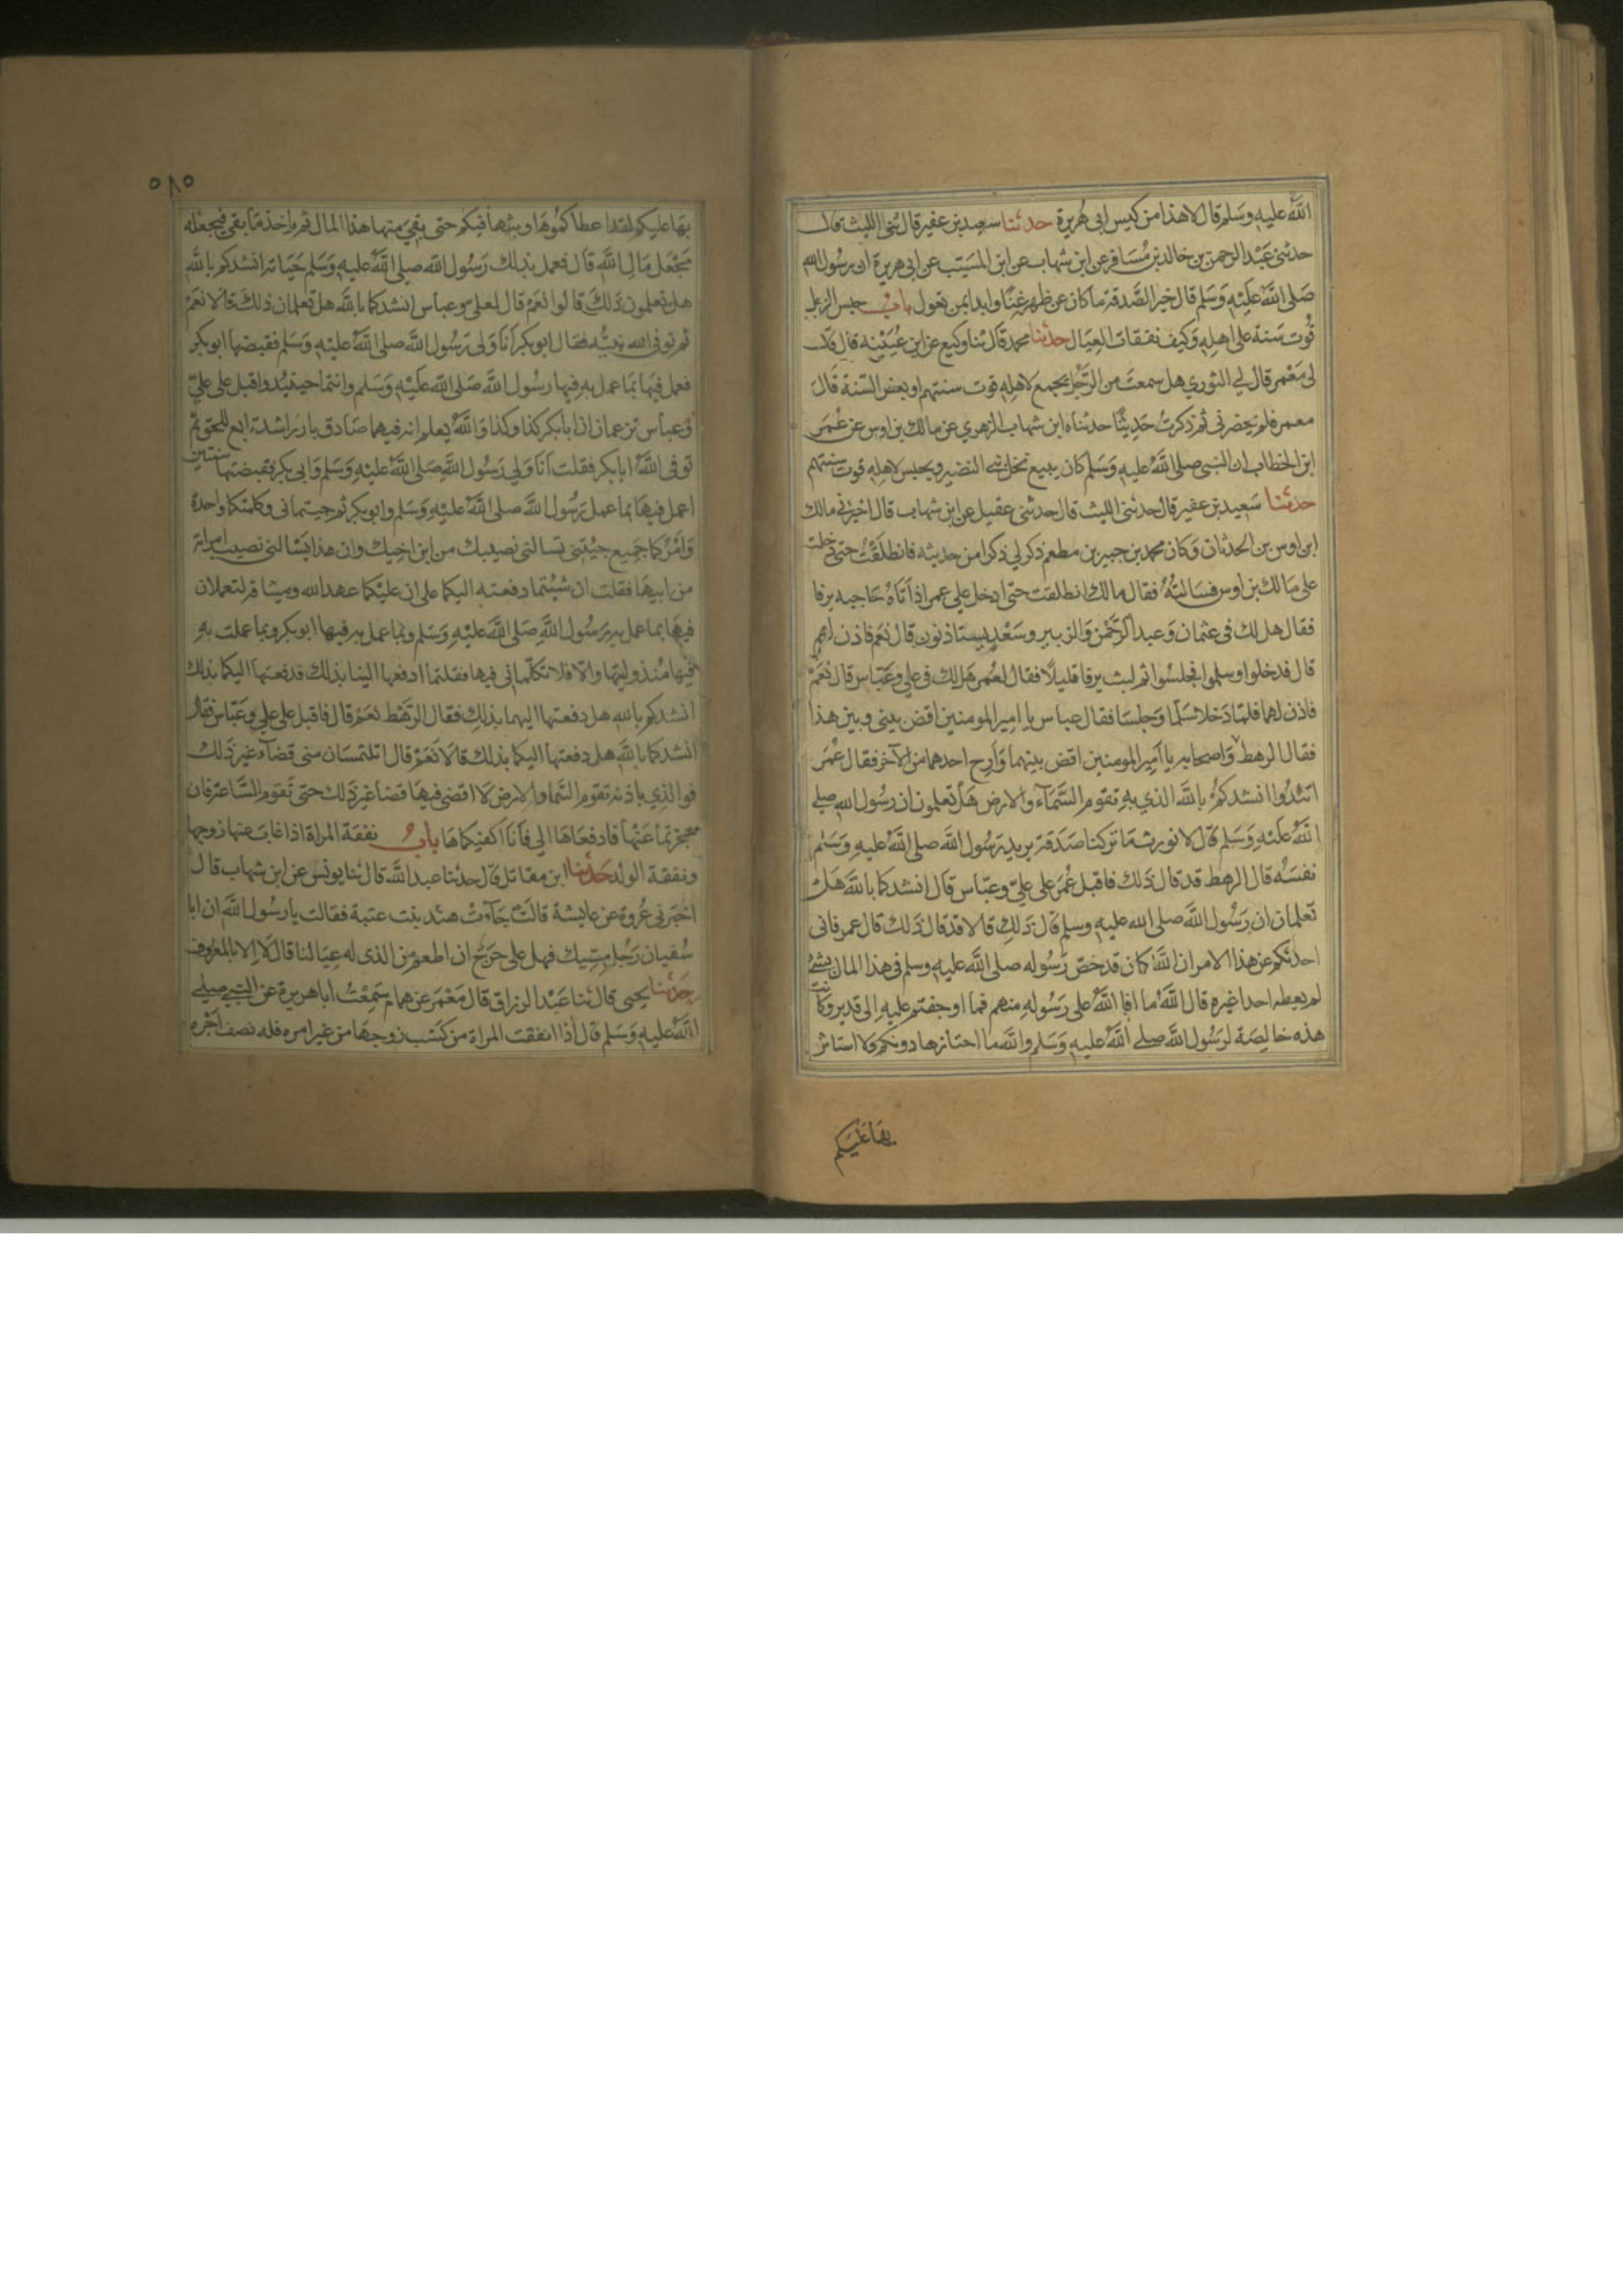 الله عليه وسلم قال لا هذا من كيس ابى هريرة حدثنا سعيد بن عفير قال ثنى الليث قال
حدثنى عبد الرحمن بن خالد بن مسافر عن ابن شهاب عن ابن المسيب عن ابى هريرة ان رسول الله
صلى الله عليه وسلم قال خير الصدقة ما كان عن ظهر غنا وابدا بمن تعول باب حبس الرجل
قوت سنة على اهله وكيف نفقات العيال حدثنا محمد قال ثنا وكيع عن ابن عيينه قال قال
لى معمر قال لي الثوري هل سمعت من الرجل يجمع لاهله قوت سنتهم او بعض السنة قال
معمر فلم يحضرنى ثم ذكرت حديثا حدثناه ابن شهاب الزهري عن مالك بن اوس عن عمر
ابن الخطاب ان النبى صلى الله عليه وسلم كان يبيع نخل بنى النضير ويحبس لاهله قوت سنتهم
حدثنا سعيد بن عفير قال حدثنى الليث قال حدثنى عقيل عن ابن شهاب قال اخبرنى مالك
ابن اوس بن الحدثان وكان محمد بن جبير بن مطعم ذكر لي ذكرا من حديثه فانطلقت حتى دخلت
على مالك بن اوس فسالته فقال مالك انطلقت حتى ادخل علي عمر اذ اتاه حاجبه يرفا
فقال هل لك فى عثمان وعبد الرحمن والزبير وسعد يستاذنون قال نعم فاذن لهم
قال فدخلوا وسلموا فجلسوا ثم لبث يرفا قليلا فقال لعمر هل لك فى علي وعباس قال نعم
فاذن لهما فلما دخلا سلما وجلسا فقال عباس يا امير المومنين اقض بينى وبين هذا
فقال الرهط واصحابه يا امير المومنين اقض بينهما وارح احدهما من الاخر فقال عمر
اتئدوا انشدكم بالله الذي به تقوم السمآء والارض هل تعلمون ان رسول الله صلى
الله عليه وسلم قال لا نورث ما تركنا صدقة يريد رسول الله صلى الله عليه وسلم
نفسه قال الرهط قد قال ذلك فاقبل عمر على علي وعباس قال انشدكما بالله هل
تعلمان ان رسول الله صلى الله عليه وسلم قال ذلك قالا قد قال ذلك قال عمر فانى
احدثكم عن هذا الامر ان الله كان قد خص رسوله صلى الله عليه وسلم فى هذا المال بشئ
لم يعطه احدا غيره قال الله ما افا الله على رسوله منهم فما اوجفتم عليه الى قدير وكانت
هذه خالصة لرسول الله صلى الله عليه وسلم والله ما احتازها دونكم ولا استاثر
بها عليكم
٥٨٥
بها عليكم لقد اعطاكموها وبثها فيكم حتى بقى منها هذا المال ثم ياخذ ما بقى فيجعله
مجعل مال الله قال فعمل بذلك رسول الله صلى الله عليه وسلم حياته انشدكم بالله
هل تعلمون ذلك قالوا نعم قال لعلي وعباس انشدكما بالله هل تعلمان ذلك قالا نعم
ثم توفى الله نبيه فقال ابو بكر انا ولى رسول الله صلى الله عليه وسلم فقبضها ابو بكر
فعمل فيها بما عمل به فيها رسول الله صلى الله عليه وسلم وانتما حينئذ واقبل على علي
وعباس تزعمان ان ابا بكر كذا وكذا والله يعلم انه فيها صادق بار راشد تابع للحق ثم
توفى الله ابا بكر فقلت انا ولي رسول الله صلى الله عليه وسلم وابى بكر فقبضتها سنتين
اعمل فيها بما عمل رسول الله صلى الله عليه وسلم وابو بكر ثم جيتمانى وكلمتكما واحدة
وامركما جميع جيتنى تسالنى نصيبك من ابن اخيك وان هذا يسالنى نصيب امراته
من ابيها فقلت ان شيتما دفعته اليكما على ان عليكما عهد الله وميثاقه لتعملان
فيها بما عمل به رسول الله صلى الله عليه وسلم وبما عمل به فيها ابو بكر وبما عملت به
فيها منذ وليتها والا فلا تكلمانى فيها فقلتما ادفعها الينا بذلك فدفعتها اليكما بذلك
انشدكم بالله هل دفعتها اليهما بذلك فقال الرهط نعم قال فاقبل على علي وعباس فقال
انشدكما بالله هل دفعتها اليكما بذلك قالا نعم قال افتلتمسان منى قضآء غير ذلك
فوالذي باذنه تقوم السما والارض لا اقضى فيها قضا غير ذلك حتى تقوم الساعة فان
عجزتما عنها فادفعاها الي فانا اكفيكماها باب نفقة المراة اذا غاب عنها زوجها
ونفقة الولد حدثنا ابن مقاتل قال حدثنا عبد الله قال ثنا يونس عن ابن شهاب قال
اخبرنى عروة عن عايشة قالت جآءت هند بنت عتبة فقالت يا رسول الله ان ابا
سفيان رجل مسيك فهل على حرج ان اطعم من الذى له عيالنا قال لا الا بالمعروف
حدثنا يحيى قال ثنا عبد الرزاق قال معمر عن همام سمعت ابا هريرة عن النبى صلى
الله عليه وسلم قال اذا انفقت المراة من كسب زوجها من غير امره فله نصف اجره